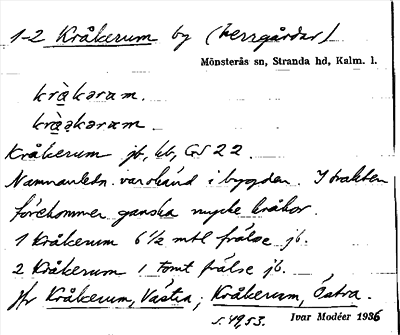 1-2 Kråkerum by (herrgårdar)
Mönsterås sn, Stranda hd, Kalm. l.
kràkərum.
krà̱akərum
Kråkerum jb, kb, GS 22.
Namnanledn. var okänd i bygden. I trakten
förekommer ganska mycke kråkor.
1 Kråkerum 6½ mtl frälse jb.
2 Kråkerum 1 tomt frälse jb.
Jfr Kråkerum, Västra; Kråkerum, Östra.
s. 49, 53. Ivar Modéer 1936